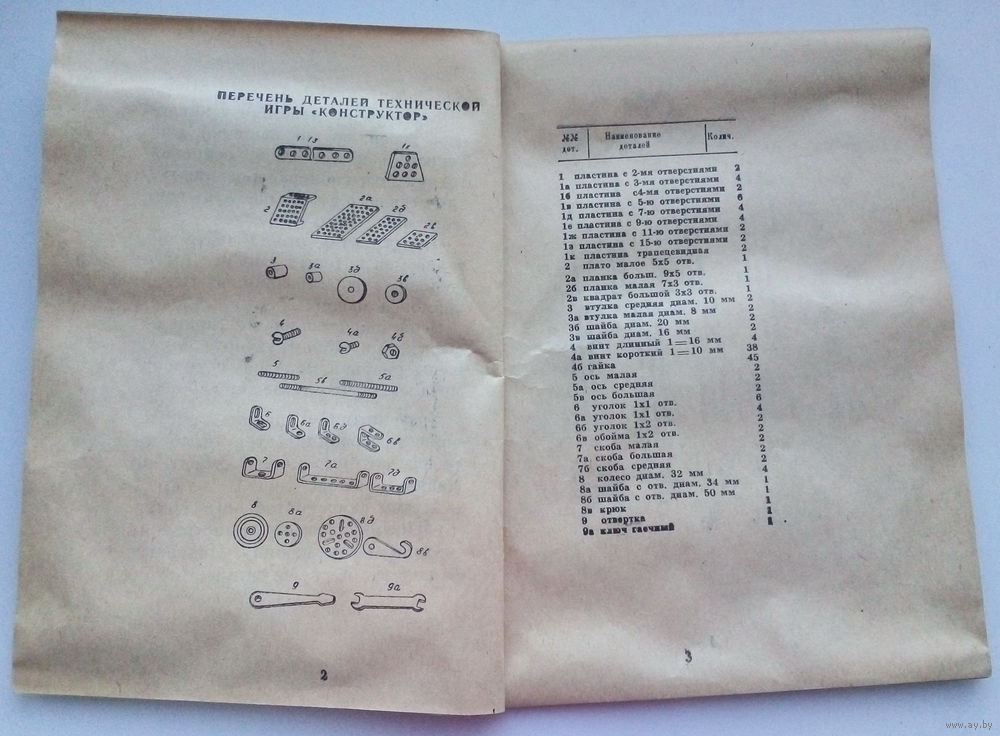 ПЕРЕЧЕНЬ ДЕТАЛЕЙ ТЕХНИЧЕСКОЙ
ИГРЫ «КОНСТРУКТОР»
1 1з 1к
2 2а 2б 2в
3 3а 3д 3в
4 4а 4б
5 5в 5а
6 6а 6д 6в
7 7а 7д
8 8а 8д 8в
9 9а
2
№№ дет. Наименование деталей Колич.
1 пластина с 2-мя отверстиями 2
1а пластина с 3-мя отверстиями 4
1б пластина с4-мя отверстиями 2
1в пластина с 5-ю отверстиями 6
1д пластина с 7-ю отверстиями 4
1е пластина с 9-ю отверстиями 4
1ж пластина с 11-ю отверстиями 2
1з пластина с 15-ю отверстиями 2
1к пластина трапецевидная 2
2 плато малое 5х5 отв. 1
2а планка больш. 9х5 отв. 1
2б планка малая 7х3 отв. 1
2в квадрат большой 3х3 отв. 1
3 втулка средняя диам. 10 мм 2
3а втулка малая диам. 8 мм 2
3б шайба диам. 20 мм 2
3в шайба диам. 16 мм 2
4 винт длинный 1=16 мм 4
4а винт короткий 1=10 мм 38
4б гайка 45
5 ось малая 2
5а ось средняя 2
5в ось большая 2
6 уголок 1х1 отв. 6
6а уголок 1х1 отв. 4
6б уголок 1х2 отв. 2
6в обойма 1х2 отв. 2
7 скоба малая 2
7а скоба большая 2
7б скоба средняя 2
8 колесо диам. 32 мм 4
8а шайба с отв. диам. 34 мм 1
8б шайба с отв. диам. 50 мм 1
8в крюк 1
9 отвертка 1
9а ключ гаечный 1
3
www.ay.by